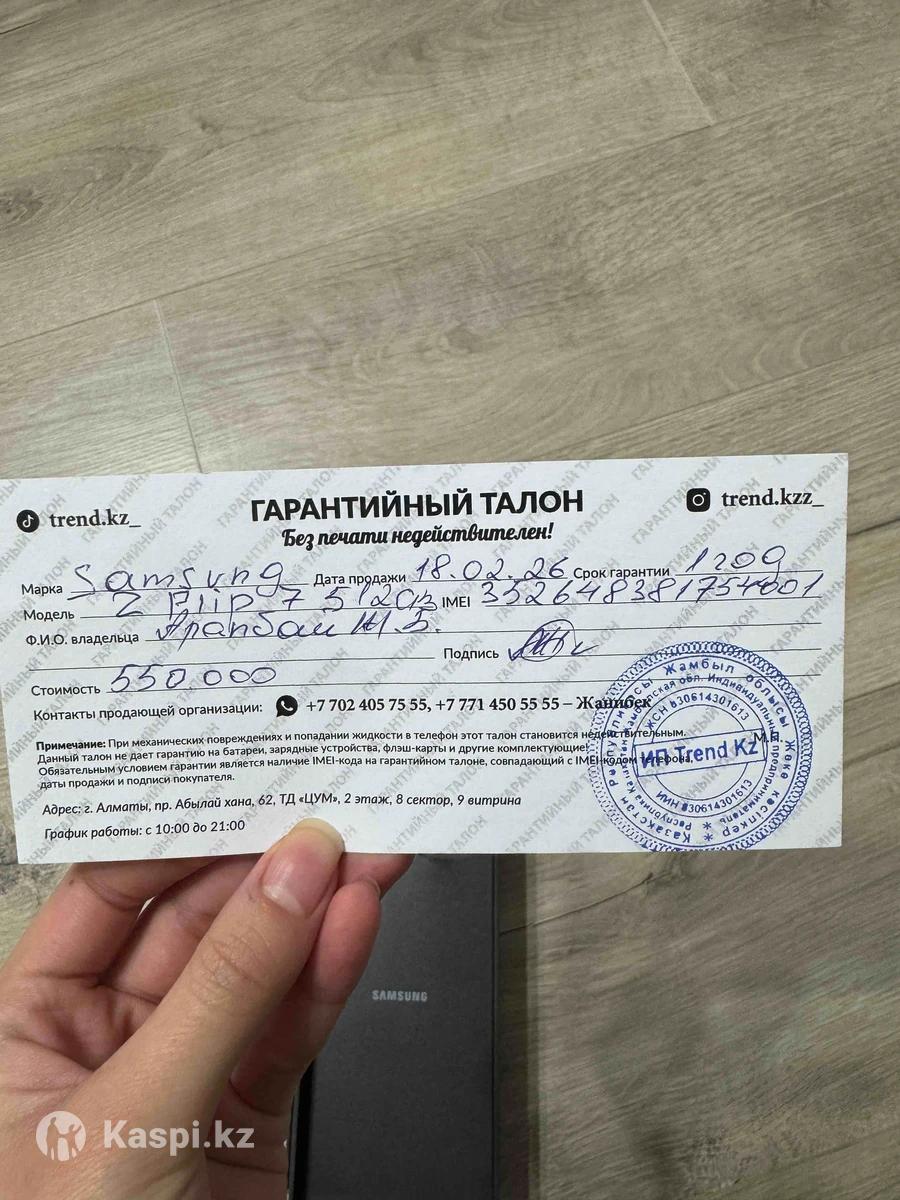 trend.kz_
ГАРАНТИЙНЫЙ ТАЛОН
trend.kzz_
Без печати недействителен!
Марка Samsung Дата продажи 18.02.26 Срок гарантии 1 год
Модель Z Flip 7 512Gb IMEI 352648381754001
Ф.И.О. владельца Арапбай Ж.Б.
Подпись
Стоимость 550 000
Контакты продающей организации: +7 702 405 75 55, +7 771 450 55 55 – Жанибек
Примечание: При механических повреждениях и попадании жидкости в телефон этот талон становится недействительным.
Данный талон не дает гарантию на батареи, зарядные устройства, флэш-карты и другие комплектующие!
Обязательным условием гарантии является наличие IMEI-кода на гарантийном талоне, совпадающий с IMEI-кодом телефона,
даты продажи и подписи покупателя.
М.П.
Адрес: г. Алматы, пр. Абылай хана, 62, ТД «ЦУМ», 2 этаж, 8 сектор, 9 витрина
График работы: с 10:00 до 21:00
Қазақстан Республикасы Жамбыл облысы Жеке кәсіпкер
ИП Trend Kz
SAMSUNG
Kaspi.kz